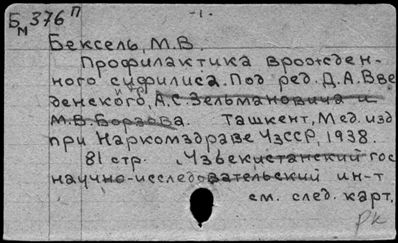 Бм 376 П
-1.
Бексель, М.В.
Профилактика врожден-
ного сифилиса. Под ред. Д.А. Вве
денского, и др. А.С. Зельмановича и
М.В. Борзова. Ташкент, Мед. изд
при Наркомздраве УзССР, 1938.
81 стр. Узбекистанский гос
научно-исследовательский ин-т
см. след. карт.
РК